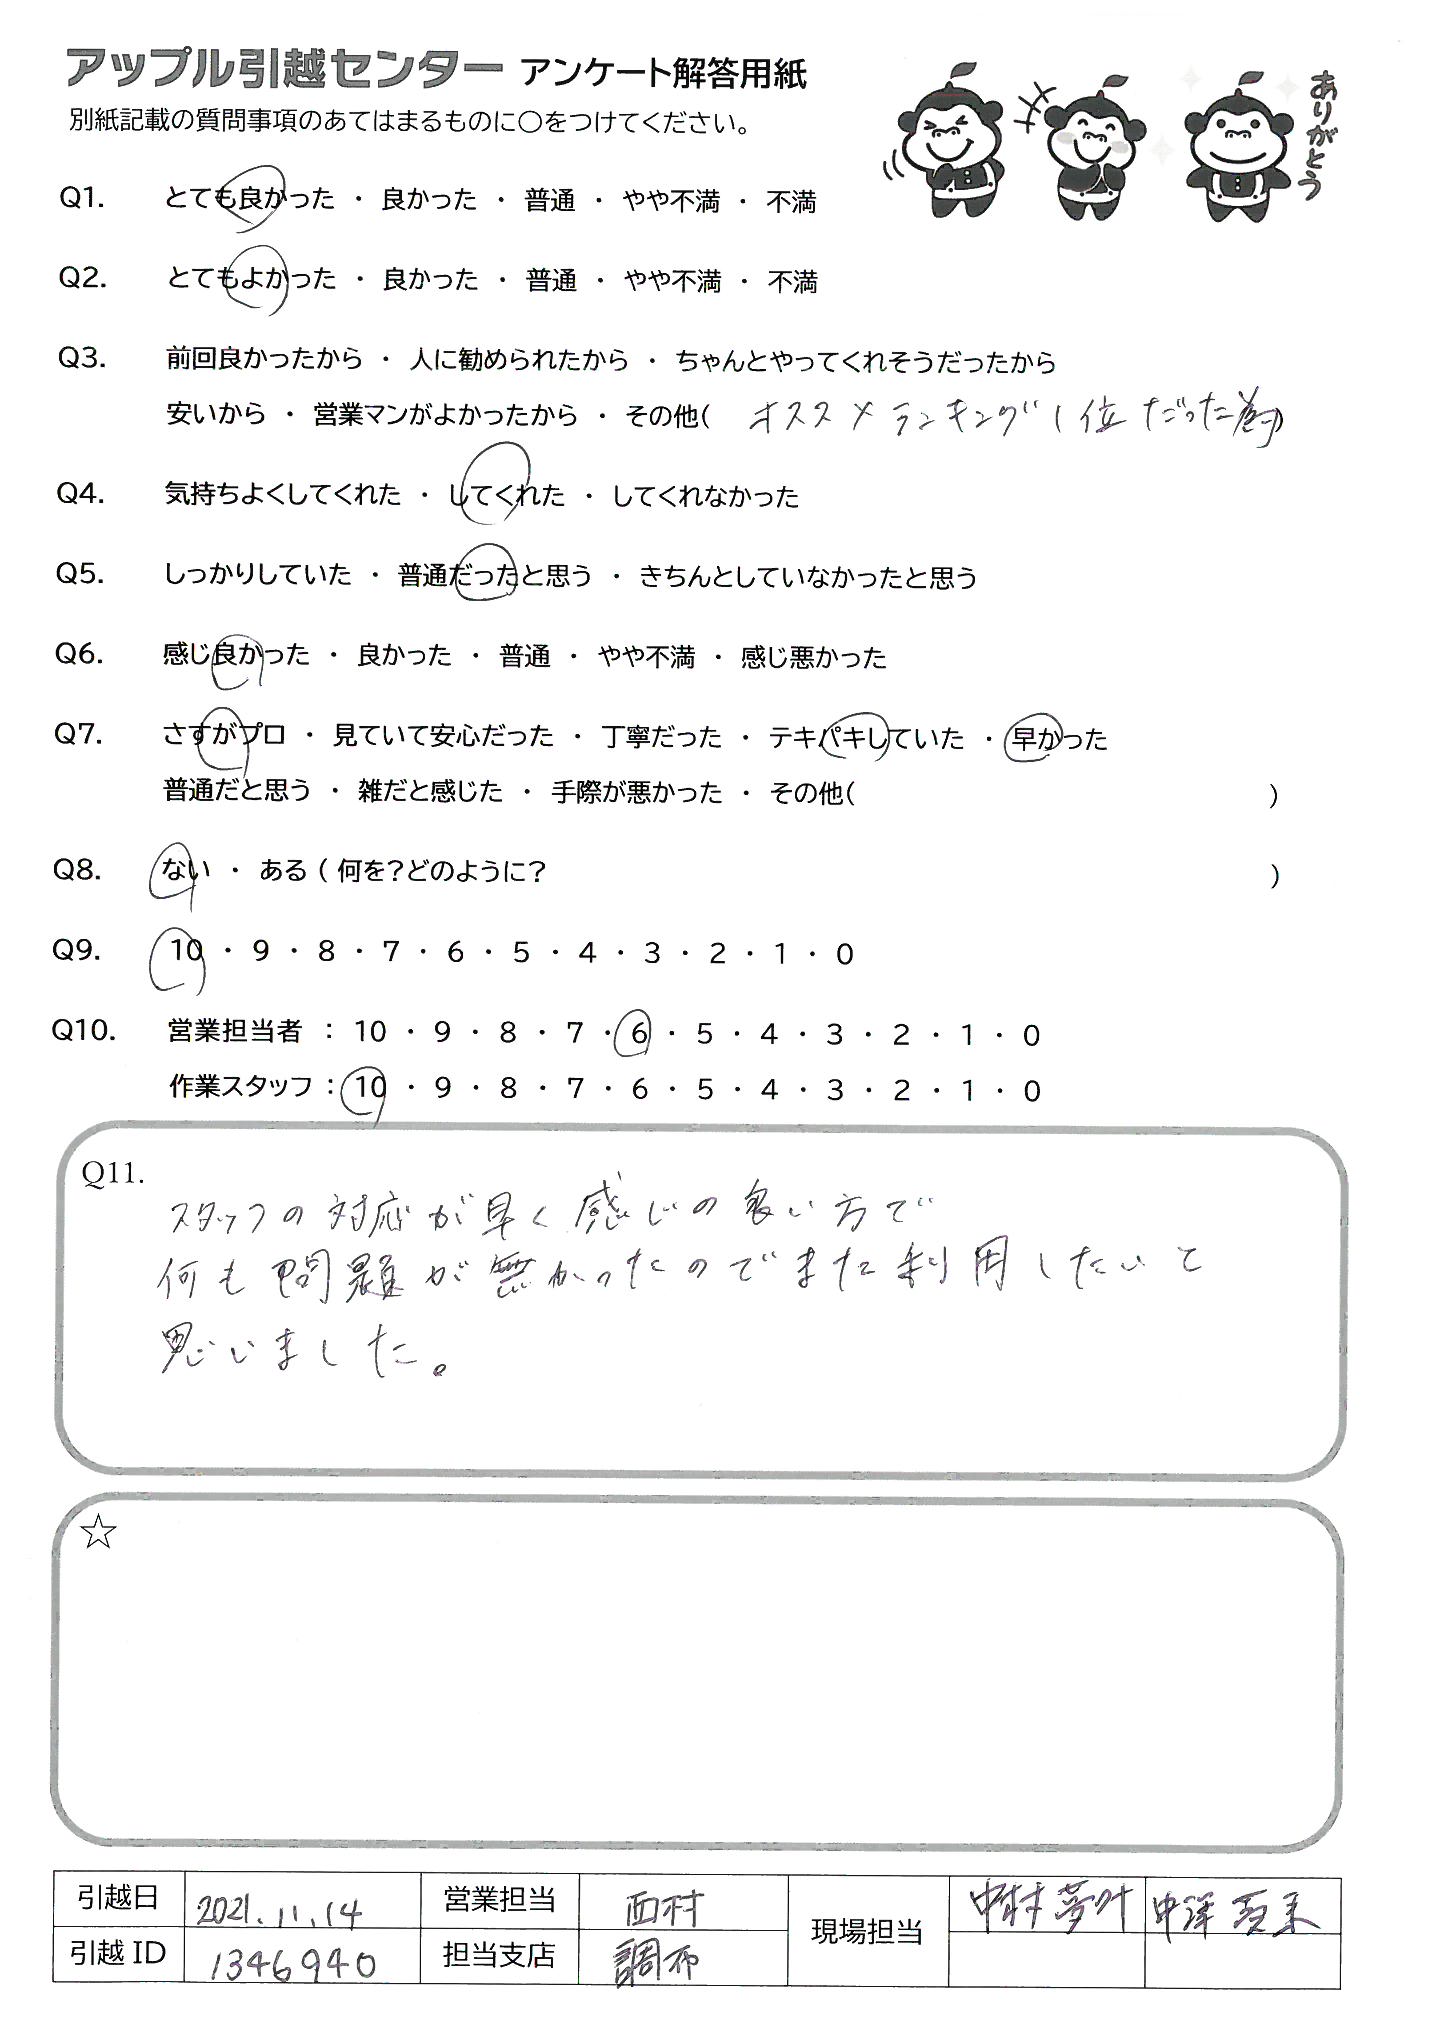 アップル引越センター アンケート解答用紙
別紙記載の質問事項のあてはまるものに○をつけてください。
ありがとう
Q1. とても良かった ・ 良かった ・ 普通 ・ やや不満 ・ 不満
Q2. とてもよかった ・ 良かった ・ 普通 ・ やや不満 ・ 不満
Q3. 前回良かったから ・ 人に勧められたから ・ ちゃんとやってくれそうだったから
安いから ・ 営業マンがよかったから ・ その他( オススメランキング1位だった為)
Q4. 気持ちよくしてくれた ・ してくれた ・ してくれなかった
Q5. しっかりしていた ・ 普通だったと思う ・ きちんとしていなかったと思う
Q6. 感じ良かった ・ 良かった ・ 普通 ・ やや不満 ・ 感じ悪かった
Q7. さすがプロ ・ 見ていて安心だった ・ 丁寧だった ・ テキパキしていた ・ 早かった
普通だと思う ・ 雑だと感じた ・ 手際が悪かった ・ その他( )
Q8. ない ・ ある ( 何を?どのように? )
Q9. 10 ・ 9 ・ 8 ・ 7 ・ 6 ・ 5 ・ 4 ・ 3 ・ 2 ・ 1 ・ 0
Q10. 営業担当者 : 10 ・ 9 ・ 8 ・ 7 ・ 6 ・ 5 ・ 4 ・ 3 ・ 2 ・ 1 ・ 0
作業スタッフ : 10 ・ 9 ・ 8 ・ 7 ・ 6 ・ 5 ・ 4 ・ 3 ・ 2 ・ 1 ・ 0
Q11.
スタッフの対応が早く感じの良い方で
何も問題が無かったのでまた利用したいと
思いました。
☆
引越日 2021.11.14 営業担当 西村 現場担当 中村 夢叶 中澤
引越 ID 1346940 担当支店 調布